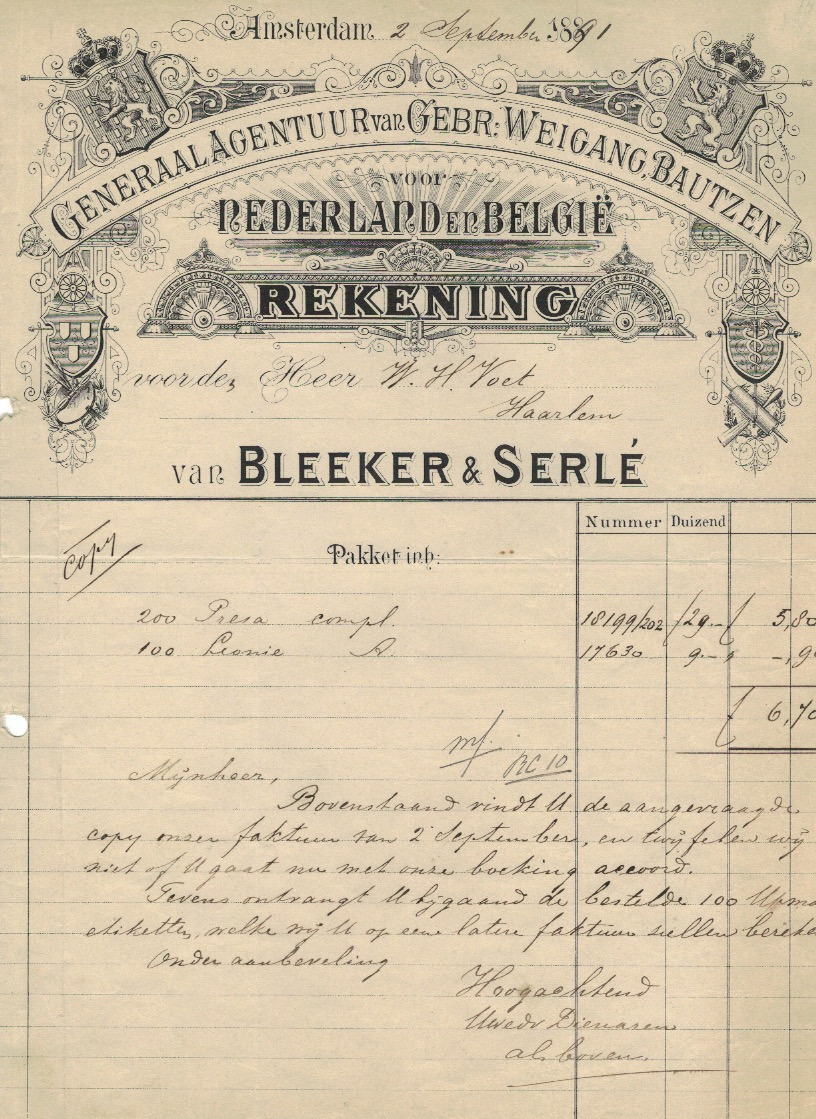 Amsterdam 2 September 1891
GENERAAL AGENTUUR van GEBR: WEIGANG, BAUTZEN
voor
NEDERLAND EN BELGIË
REKENING
voor den Heer W. H. Voet
Haarlem
van BLEEKER & SERLÉ
Nummer Duizend
copy
Pakket inh:
200 Presa compl. 18199/202 /29.- f 5,80
100 Leonie A. 17630 9.- " -,90
f 6,70
mf.
RC 10
Mijnheer,
Bovenstaand vindt U de aangevraagde
copy onzer faktuur van 2 September, en twijfelen wij
niet of U gaat nu met onze boeking accoord.
Tevens ontvangt U bijgaand de bestelde 100
etiketten, welke wij U op eene latere faktuur zullen
Onder aanbeveling
Hoogachtend
Uwedv Dienaren
als boven.